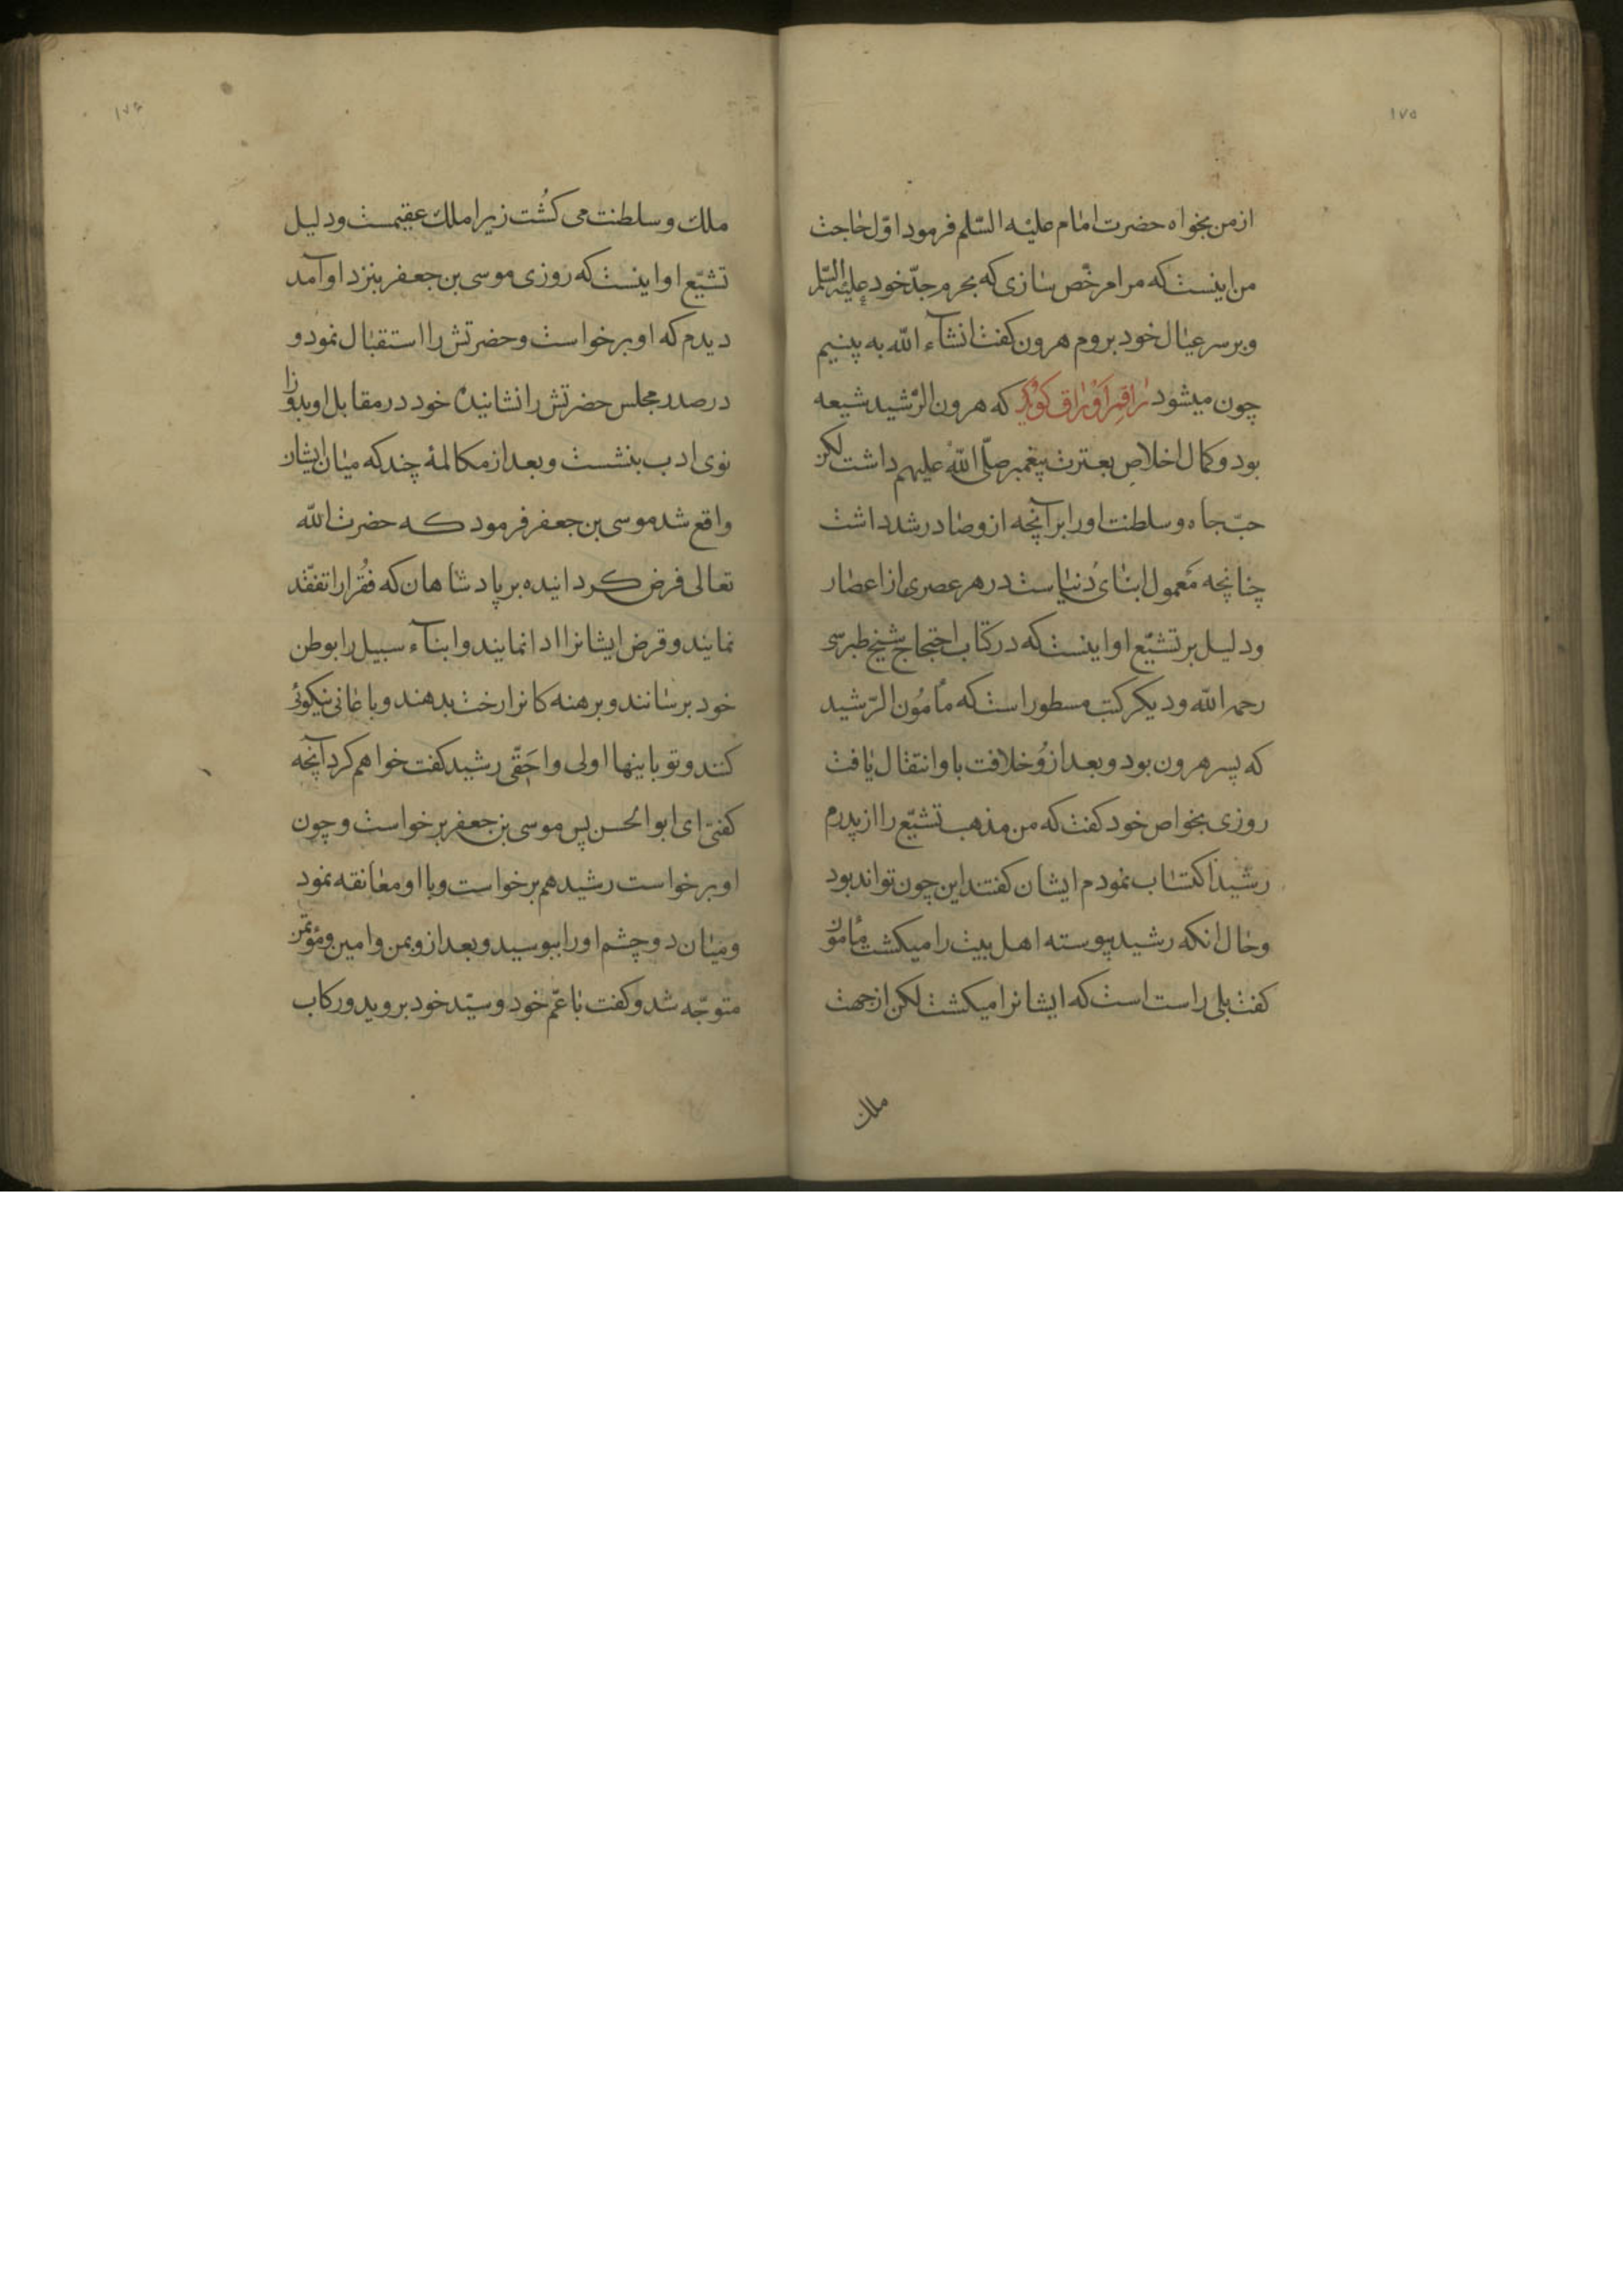 ١٧٥
ازمن بخواه حضرت امام علیه السّلم فرمود اوّل حاجت
من اینست که مرا مرخّص سازی که بحرم جدّ خود علیه السّلم
و بر سر عیال خود بروم هرون کفت انشآء الله به بینیم
چون میشود راقم اوراق کوید که هرون الرّشید شیعه
بود و کمال اخلاص بعترت پیغمبر صلّی الله علیهم داشت لکن
حبّ جاه و سلطنت او را بر آنچه ازو صادر شد داشت
چنانچه معمول ابنای دُنیاست در هر عصری از اعصار
و دلیل بر تشیّع او اینست که در کتاب احتجاج شیخ طبرسی
رحمه الله و دیکر کتب مسطور است که مأمُون الرّشید
که پسر هرون بود و بعد ازوُ خلافت باو انتقال یافت
روزی بخواص خود کفت که من مذهب تشیّع را از پدرم
رشید اکتساب نمودم ایشان کفتند این چون تواند بود
و حال انکه رشید پیوسته اهل بیت را میکشت مأمون
کفت بلی راست است که ایشانرا میکشت لکن از جهت
ملك
١٧٦
ملك و سلطنت می کشُت زیرا ملك عقیمست و دلیل
تشیّع او اینست که روزی موسی بن جعفر بنزد او آمد
دیدم که او برخواست و حضرتش را استقبال نمود و
در صدر مجلس حضرتش را نشانید خود در مقابل او بدو زا
نوی ادب بنشست و بعد از مکالمهٔ چند که میان ایشان
واقع شد موسی بن جعفر فرمود که حضرت الله
تعالی فرض کردانیده بر پادشاهان که فُقرا را تفقّد
نمایند و قرض ایشانرا ادا نمایند و ابنآء سبیل را بوطن
خود برسانند و برهنه کانرا رخت بدهند و باعانی نیکوئی
کنند و تو باینها اولی و احَقّی رشید کفت خواهم کرد آنچه
کفتی ای ابوالحسن پس موسی بن جعفر برخواست و چون
او برخواست رشید هم برخواست و با او معانقه نمود
و میان دو چشم او را ببوسید و بعد ازو بمن و امین و مؤتمن
متوجّه شد و کفت با عمّ خود و سیّد خود بروید و رکاب